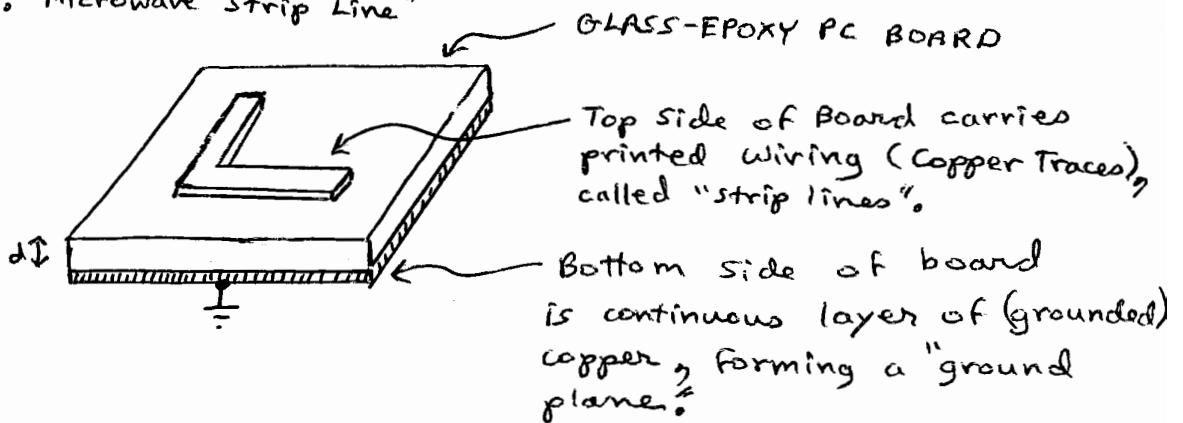 . "Microwave Strip Line"
GLASS-EPOXY PC BOARD
Top side of Board carries
printed wiring (Copper Traces),
called "strip lines".
d
Bottom side of board
is continuous layer of (grounded)
copper, forming a "ground
plane."